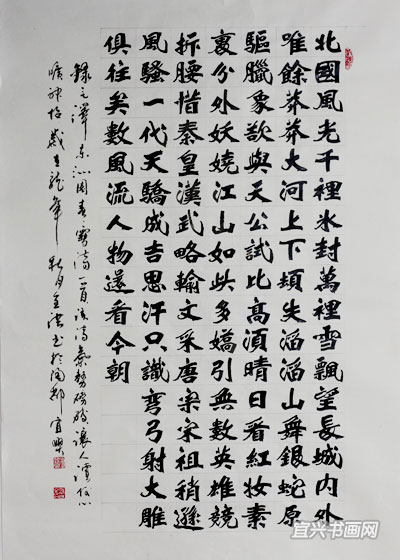 北國風光千裡冰封萬裡雪飄望長城內外
唯餘莽莽大河上下頓失滔滔山舞銀蛇原
驅臘象欲與天公試比高須晴日看紅妝素
裹分外妖嬈江山如此多嬌引無數英雄競
折腰惜秦皇漢武略輸文采唐宗宋祖稍遜
風騷一代天驕成吉思汗只識彎弓射大雕
俱往矣數風流人物還看今朝
錄毛澤東沁園春雪詩一首該詩氣勢磅礴讓人讀後心
曠神怡歲在龍年秋月書於陶都宜興
宜兴书画网